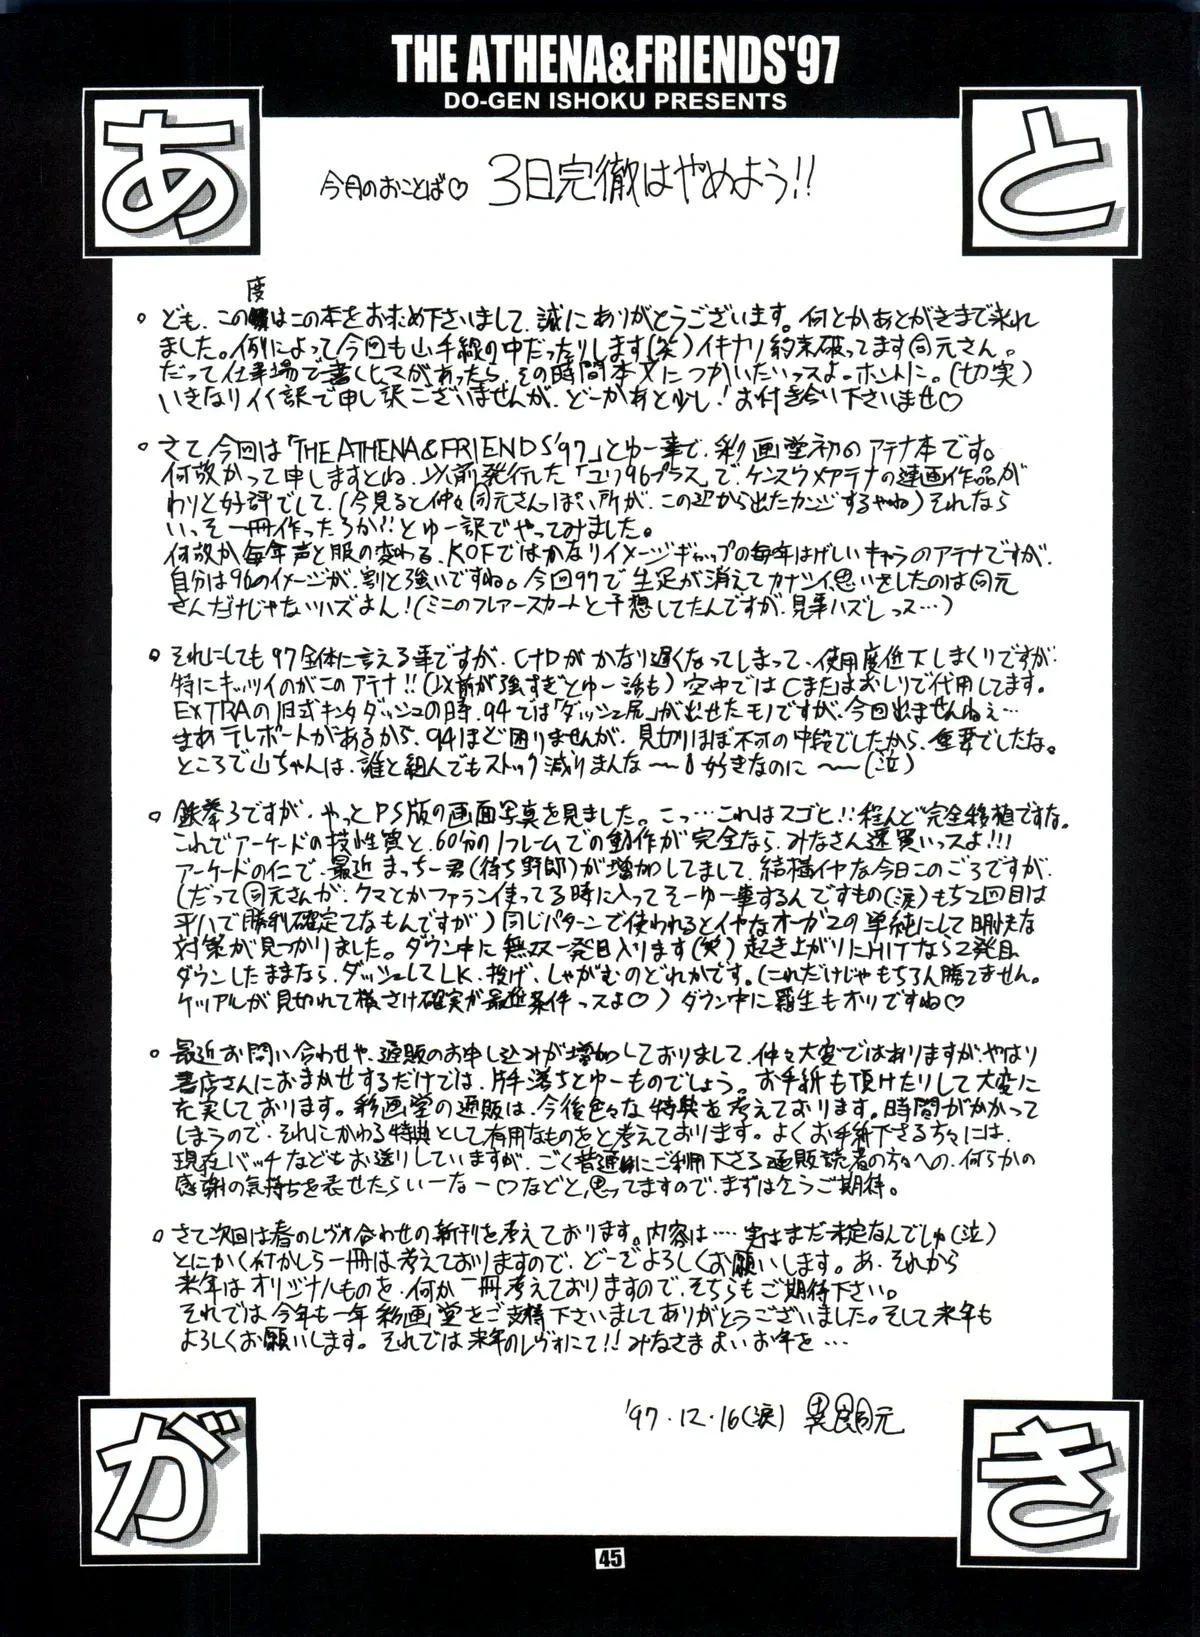 THE ATHENA&FRIENDS'97
DO-GEN ISHOKU PRESENTS
あ
と
今月のおことば♡ 3日完徹はやめよう!!
度
。ども、このはこの本をお求め下さいまして、誠にありがとうございます。何とかあとがきまで来れ
ました。例によって今回も山手線の中だったりします(笑)イキナリ約束破ってます同元さん。
だって仕事場で書くヒマがあったら、その時間本文につかいたいっスよ。ホントに。(切実)
いきなりイイ訳で申し訳ございませんが、どーかあと少し!お付き合い下さいませ♡
。さて、今回は「THE ATHENA&FRIENDS'97」とゆー事で、彩画堂初のアテナ本です。
何故かって申しますとね、以前発行した「ユリ96プラス」で、ケンスウ×アテナの連画作品が
わりと好評でして、(今見ると仲々同元さんっぽい所が、この辺から出たカンジするやね)それなら
いっそ一冊作ったろか!?とゆー訳でやってみました。
何故か毎年声と服の変わる、KOFではかなりイメージギャップの毎年はげしいキャラのアテナですが、
自分は96のイメージが、割と強いですね。今回97で生足が消えてカナシイ思いをしたのは同元
さんだけじゃないハズよん!(ミニのフレアースカートと予想してたんですが、見事ハズレっス…)
。それにしても97全体に言える事ですが、C+Dがかなり遅くなってしまって、使用度低下しまくりですが、
特にキッツイのがこのアテナ!!(以前が強すぎとゆー話も)空中ではCまたはおしりで代用してます。
EXTRAの旧式キンタダッシュの時、94では「ダッシュ尻」が出せたモノですが、今回出ませんねぇ…
まあテレポートがあるから、94ほど困りませんが、見切りほぼ不可の中段でしたから、重要でしたな。
ところで山ちゃんは、誰と組んでもストック減りまんな〜〜0好きなのに〜〜(泣)
。鉄拳3ですが、やっとPS版の画面写真を見ました。こっ…これはスゴヒ!!殆んど完全移植ですな。
これでアーケードの技性質と、60分の1フレームでの動作が完全なら、みなさん速買いっスよ!!!
アーケードの仁で、最近まっちー君(待ち野郎)が増加してまして、結構イヤな今日このごろですが、
(だって同元さんが、クマとかファラン使ってる時に入ってそーゆー事するんですもの(涙)もち2回目は
平八で勝利確定てなもんですが)同じパターンで使われるとイヤなオーガ2の単純にして明快な
対策が見つかりました。ダウン中に無双一発目入ります(笑)起き上がりにHITなら2発目
ダウンしたままなら、ダッシュしてLK、投げ、しゃがむのどれかです。(これだけじゃもちろん勝てません。
ケツアルが見切れて横さけ確実が最低条件っスよ♡)ダウン中に羅生もオツですね♡
。最近お問い合わせや、通販のお申し込みが増加しておりまして、仲々大変ではありますが、やはり
書店さんにおまかせするだけでは、片手落ちとゆーものでしょう。お手紙も頂けたりして大変に
充実しております。彩画堂の通販は、今後色々な特典を考えております。時間がかかって
しまうので、それにかわる特典として有用なものをと考えております。よくお手紙下さる方々には、
現在バッチなどもお送りしていますが、ごく普通にご利用下さる通販読者の方々への、何らかの
感謝の気持ちを表せたらいーなー♡などと、思ってますので、まずは乞うご期待。
。さて次回は春のレヴォ合わせの新刊を考えております。内容は…。実はまだ未定なんでしゅ(泣)
とにかく何かしら一冊は考えておりますので、どーぞよろしくお願いします。あ、それから
来年はオリジナルものを、何か一冊考えておりますので、そちらもご期待下さい。
それでは今年も一年彩画堂をご支持下さいましてありがとうございました。そして来年も
よろしくお願いします。それでは来年のレヴォにて!!みなさまよいお年を…
'97.12.16(涙) 異食同元
が
き
45